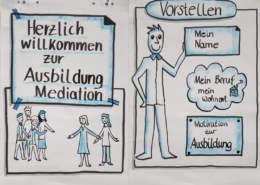 Herzlich
willkommen
zur
Ausbildung
Mediation
Vorstellen
Mein
Name
Mein Beruf
mein
Wohnort
Motivation
zur
Ausbildung